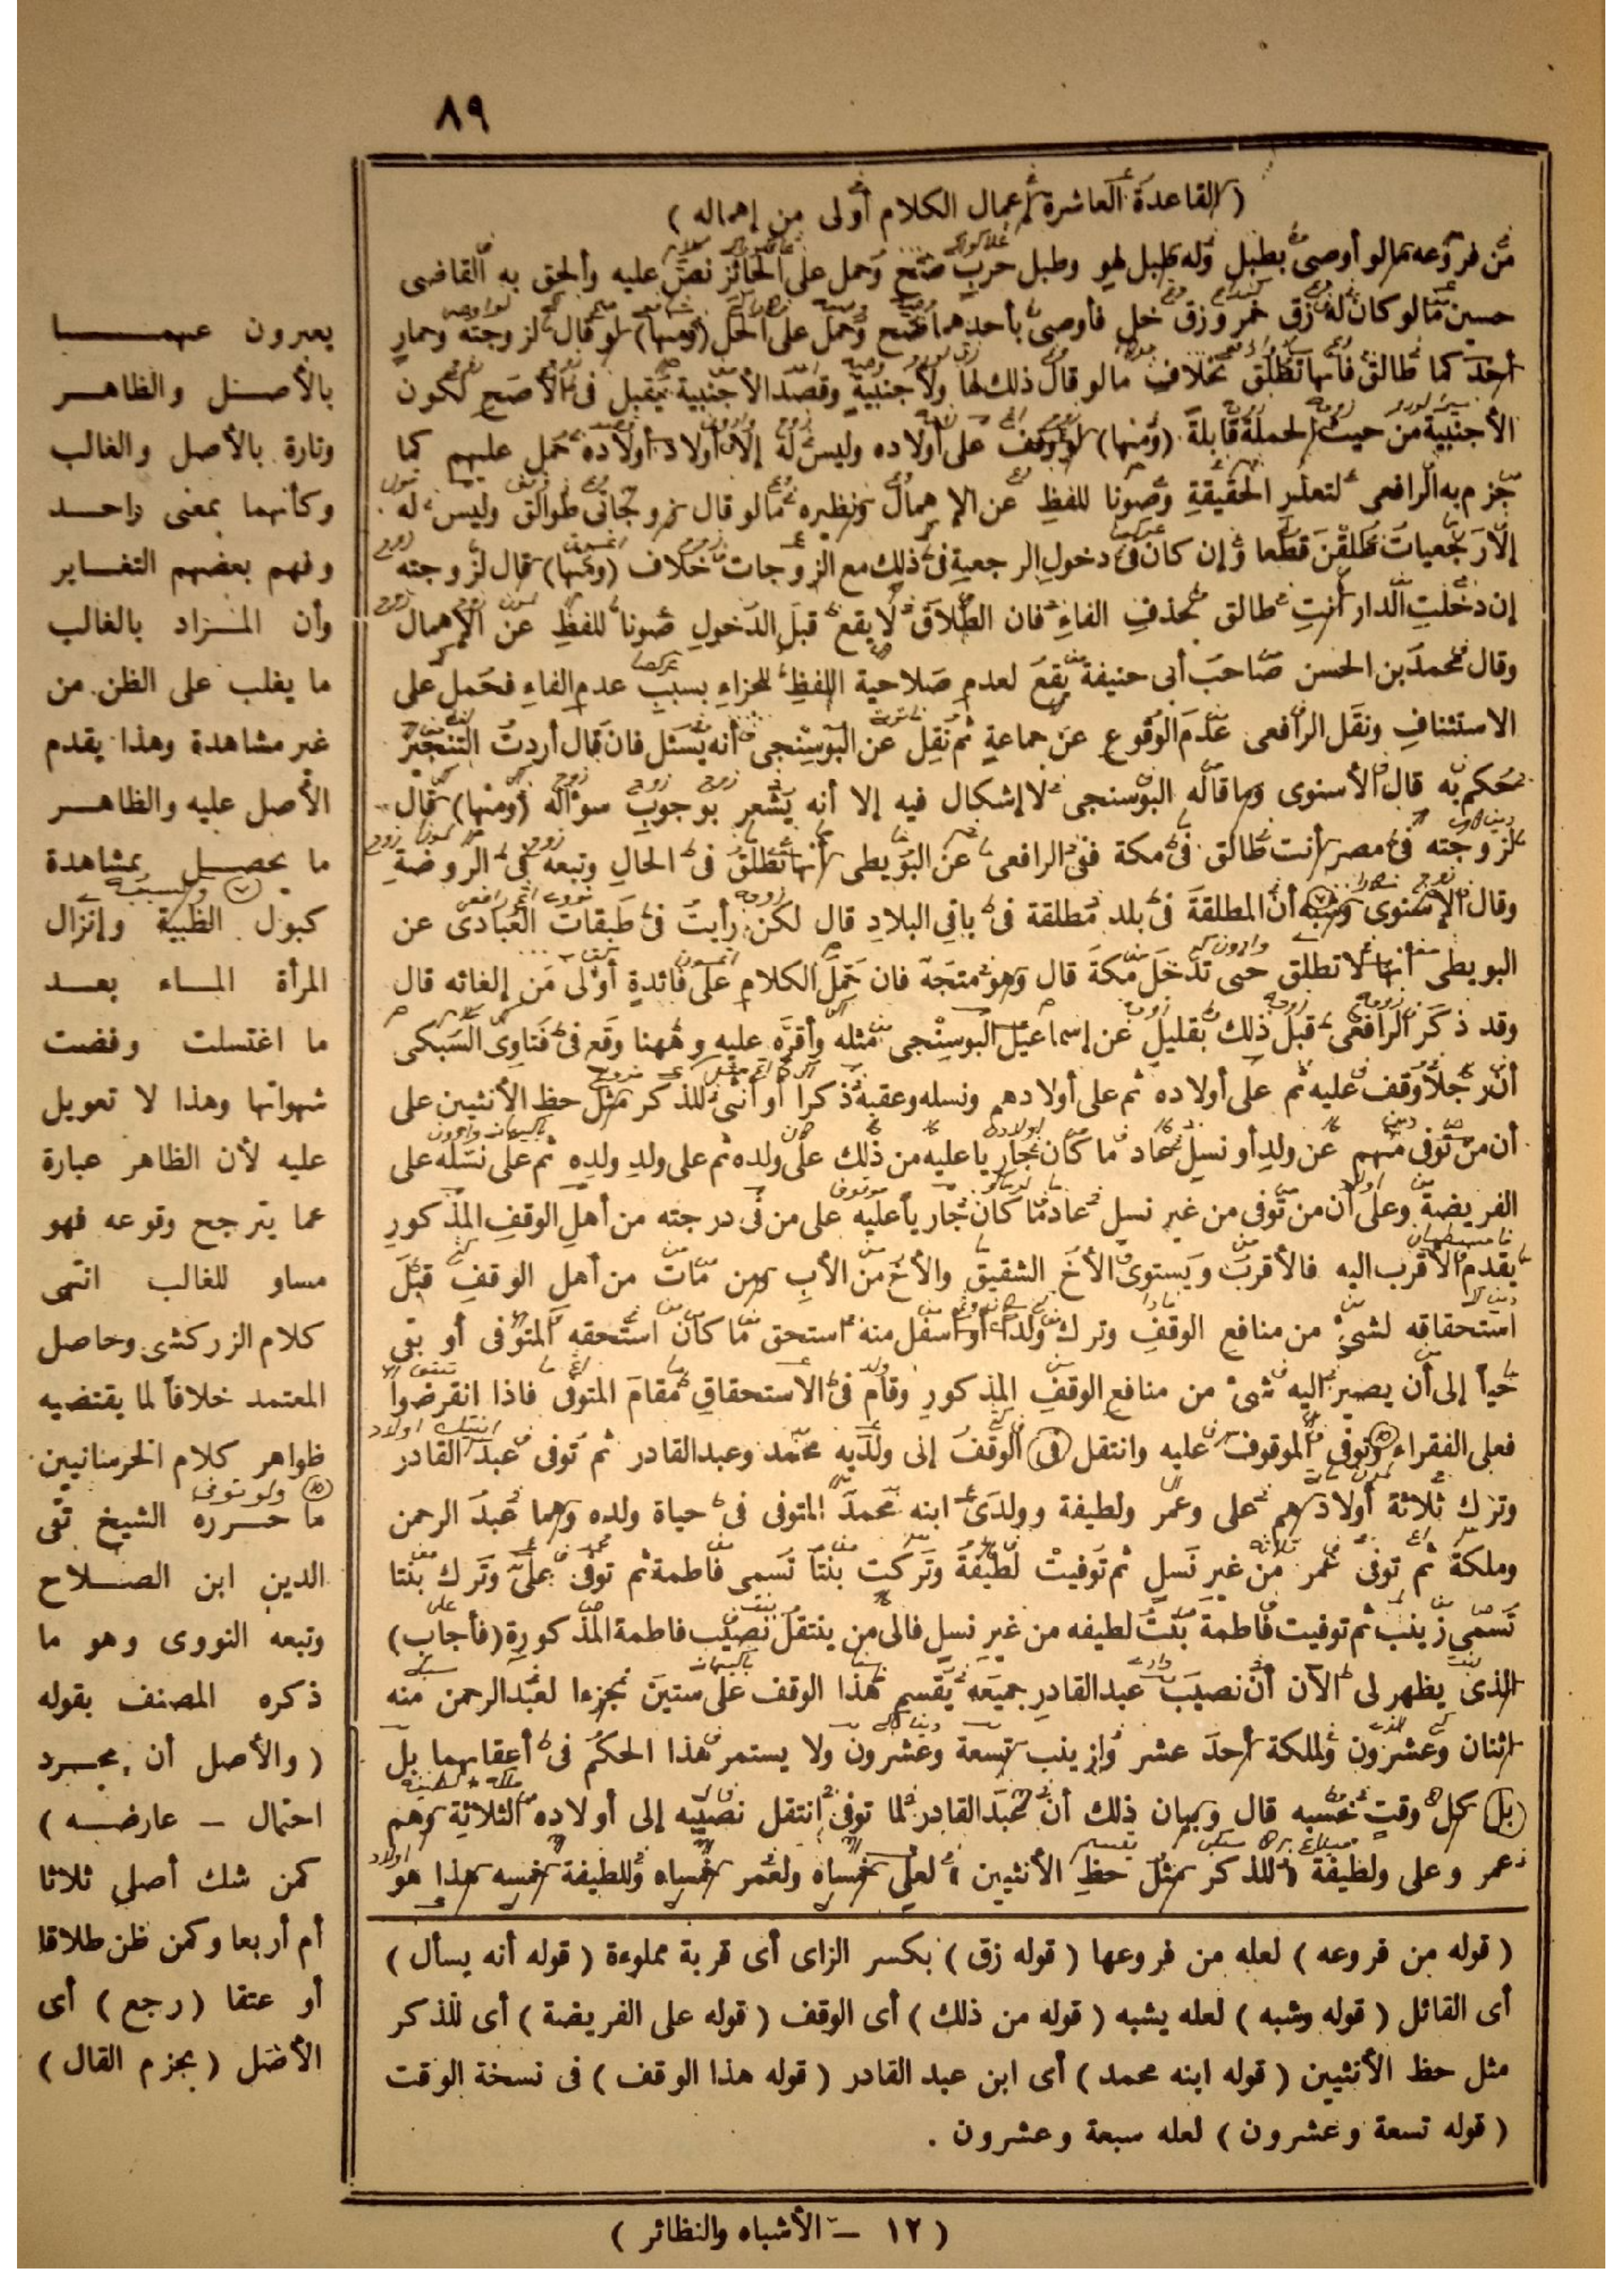 ٨٩
( القاعدة العاشرة إعمال الكلام أولى من إهماله )
من فروعه مالو أوصى بطبل وله طبل لهو وطبل حرب صح وحمل على الجائز نص عليه وألحق به القاضى
حسين مالو كان له زق خمر وزق خل فأوصى بأحدهما صح وحمل على الخل (ومنها) لو قال لزوجته وحمار
أحدكما طالق فانها تطلق بخلاف مالو قال ذلك لها ولأجنبية وقصد الأجنبية يقبل فى الأصح لكون
الأجنبية من حيث الجملة قابلة (ومنها) لو وقف على أولاده وليس له إلا أولاد أولاده حمل عليهم كما
جزم به الرافعى لتعذر الحقيقة وصونا للفظ عن الإهمال ونظيره مالو قال زوجاتى طوالق وليس له
إلا رجعيات طلقن قطعا وإن كان فى دخول الرجعية فى ذلك مع الزوجات خلاف (ومنها) قال لزوجته
إن دخلت الدار أنت طالق بحذف الفاء فان الطلاق لا يقع قبل الدخول صونا للفظ عن الإهمال
وقال محمد بن الحسن صاحب أبى حنيفة يقع لعدم صلاحية اللفظ للجزاء بسبب عدم الفاء فحمل على
الاستئناف ونقل الرافعى عدم الوقوع عن جماعة ثم نقل عن البوسنجى أنه يسئل فان قال أردت التنجيز
حكم به قال الأسنوى وما قاله البوسنجى لا إشكال فيه إلا أنه يشعر بوجوب سؤاله (ومنها) قال
لزوجته فى مصر أنت طالق فى مكة ففى الرافعى عن البويطى أنها تطلق فى الحال وتبعه فى الروضة
وقال الإسنوى وشبه أن المطلقة فى بلد مطلقة فى باقى البلاد قال لكن رأيت فى طبقات العبادى عن
البويطى أنها لا تطلق حتى تدخل مكة قال وهو متجه فان حمل الكلام على فائدة أولى من إلغائه قال
وقد ذكر الرافعى قبل ذلك بقليل عن إسماعيل البوسنجى مثله وأقره عليه وههنا وقع فى فتاوى السبكى
أن رجلا وقف عليه ثم على أولاده ثم على أولادهم ونسله وعقبه ذكرا أو أنثى للذكر مثل حظ الأنثيين على
أن من توفى منهم عن ولد أو نسل عاد ما كان جاريا عليه من ذلك على ولده ثم على ولد ولده ثم على نسله على
الفريضة وعلى أن من توفى من غير نسل عاد ما كان جاريا عليه على من فى درجته من أهل الوقف المذكور
يقدم الأقرب اليه فالأقرب ويستوى الأخ الشقيق والأخ من الأب ومن مات من أهل الوقف قبل
استحقاقه لشىء من منافع الوقف وترك ولدا أو أسفل منه استحق ما كان استحقه المتوفى أو بقى
حيا إلى أن يصير اليه شىء من منافع الوقف المذكور وقام فى الاستحقاق مقام المتوفى فاذا انقرضوا
فعلى الفقراء وتوفى الموقوف عليه وانتقل الوقف إلى ولديه محمد وعبد القادر ثم توفى عبد القادر
وترك ثلاثة أولادهم على وعمر ولطيفة وولدى ابنه محمد المتوفى فى حياة والده وهما عبد الرحمن
وملكة ثم توفى عمر من غير نسل ثم توفيت لطيفة وتركت بنتا تسمى فاطمة ثم توفى على وترك بنتا
تسمى زينب ثم توفيت فاطمة بنت لطيفه من غير نسل فالى من ينتقل نصيب فاطمة المذكورة (فأجاب)
الذى يظهر لى الآن أن نصيب عبد القادر جميعه يقسم هذا الوقف على ستين جزءا لعبد الرحمن منه
اثنان وعشرون ولملكة أحد عشر ولزينب تسعة وعشرون ولا يستمر هذا الحكم فى أعقابهما بل
كل وقت بحسبه قال وبيان ذلك أن عبد القادر لما توفى انتقل نصيبه إلى أولاده الثلاثة وهم
عمر وعلى ولطيفة للذكر مثل حظ الأنثيين لعلى خمساه ولعمر خمساه وللطيفة خمسه هذا هو
( قوله من فروعه ) لعله من فروعها ( قوله زق ) بكسر الزاى أى قربة مملوءة ( قوله أنه يسأل )
أى القائل ( قوله وشبه ) لعله يشبه ( قوله من ذلك ) أى الوقف ( قوله على الفريضة ) أى للذكر
مثل حظ الأنثيين ( قوله ابنه محمد ) أى ابن عبد القادر ( قوله هذا الوقف ) فى نسخة الوقت
( قوله تسعة وعشرون ) لعله سبعة وعشرون .
يعبرون عنهما
بالأصل والظاهر
وتارة بالأصل والغالب
وكأنهما بمعنى واحد
وفهم بعضهم التغاير
وأن المراد بالغالب
ما يغلب على الظن من
غير مشاهدة وهذا يقدم
الأصل عليه والظاهر
ما يحصل بمشاهدة
كبول الظبية وإنزال
المرأة الماء بعد
ما اغتسلت وقضت
شهوتها وهذا لا تعويل
عليه لأن الظاهر عبارة
عما يترجح وقوعه فهو
مساو للغالب انتهى
كلام الزركشى وحاصل
المعتمد خلافاً لما يقتضيه
ظواهر كلام الخرسانيين
ما حرره الشيخ تقى
الدين ابن الصلاح
وتبعه النووى وهو ما
ذكره المصنف بقوله
( والأصل أن مجرد
احتمال – عارضه )
كمن شك أصلى ثلاثا
أم أربعا وكمن ظن طلاقا
أو عتقا (رجع) أى
الأصل (بجزم القال)
( ١٢ – الأشباه والنظائر )